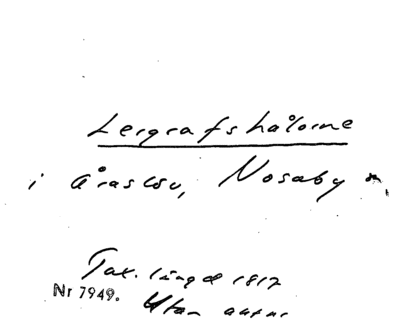 Lergrafshålorne
i Åraslöv, Nosaby
Tax. längd 1817
Nr 7949.
Utan